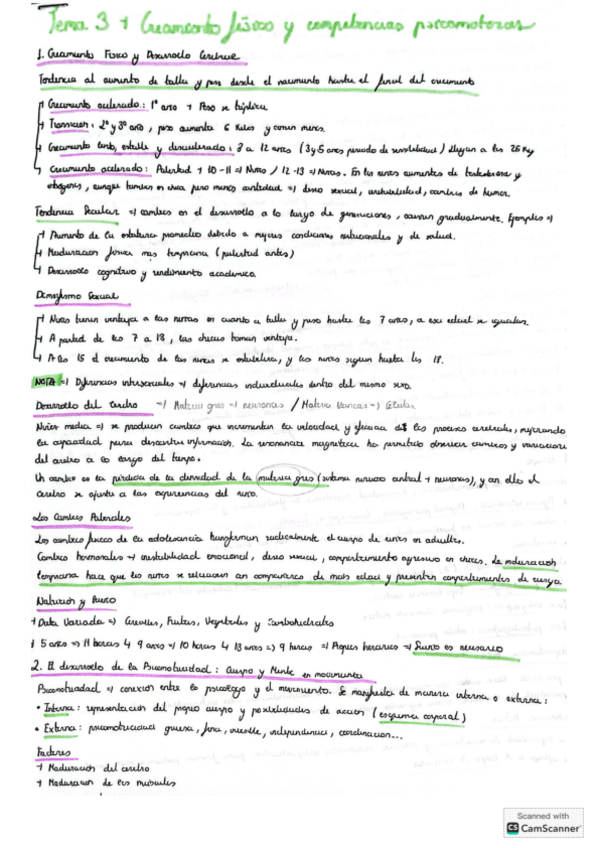 Tema 3 → Crecimiento físico y competencias psicomotoras
1. Crecimiento Físico y Desarrollo Cerebral
Tendencia al aumento de talla y peso desde el nacimiento hasta el final del crecimiento
→ Crecimiento acelerado: 1º año → Peso se triplica
→ Transición: 2º y 3º año, peso aumenta 6 kilos y comen menos.
→ Crecimiento lento, estable y desacelerado: 3 a 12 años (3 y 5 años periodo de sensibilidad) llegan a los 25 Kg
Crecimiento acelerado: Pubertad → 10-11 => Niñas / 12-13 => Niños. En los niños aumentos de testosterona y
aunque también en ellas pero menos cantidad => deseo sexual, irritabilidad, cambios de humor.
Tendencia Secular => cambios en el desarrollo a lo largo de generaciones, ocurren gradualmente. Ejemplos =>
→ Aumento de la estatura promedio debido a mejores condiciones nutricionales y de salud.
→ Maduración física más temprana (pubertad antes)
→ Desarrollo cognitivo y rendimiento académico.
Dimorfismo Sexual
→ Niños tienen ventaja a las niñas en cuanto a talla y peso hasta los 7 años, a esa edad se igualan.
→ A partir de los 7 a 13, las chicas toman ventaja.
→ A los 15 el crecimiento de las niñas se estabiliza, y los niños siguen hasta los 18.
NOTA => Diferencias intersexuales => diferencias individuales dentro del mismo sexo.
Desarrollo del Cerebro => Materia gris => neuronas / Materia blanca =>
Niñez media => se producen cambios que incrementan la velocidad y eficacia de los procesos cerebrales, mejorando
la capacidad para descartar información. La resonancia magnética ha permitido observar cambios y variaciones
del cerebro a lo largo del tiempo.
Un cambio es la pérdida de la densidad de la materia gris (sistema nervioso central → neuronas), y con ello el
cerebro se ajusta a las experiencias del niño.
Los Cambios Puberales
Los cambios físicos de la adolescencia transforman radicalmente el cuerpo de niños en adultos.
Cambios hormonales → inestabilidad emocional, deseo sexual, comportamiento agresivo en chicos. La maduración
temprana hace que los niños se relacionen con compañeros de más edad y presenten comportamientos de riesgo
Nutrición y Sueño
→ Dieta Variada => Cereales, Frutas, Vegetales y Carbohidratos
5 años => 11 horas 9 años => 10 horas 13 años => 9 horas => => Sueño es necesario
2. El desarrollo de la Psicomotricidad: Cuerpo y Mente en movimiento
Psicomotricidad => conexión entre la psicología y el movimiento. Se manifiesta de manera interna o externa:
• Interna: representación del propio cuerpo y posibilidades de acción (esquema corporal)
• Externa: psicomotricidad gruesa, fina, independencia, coordinación...
Factores
→ Maduración del cerebro
→ Maduración de los músculos
Scanned with
CS CamScanner